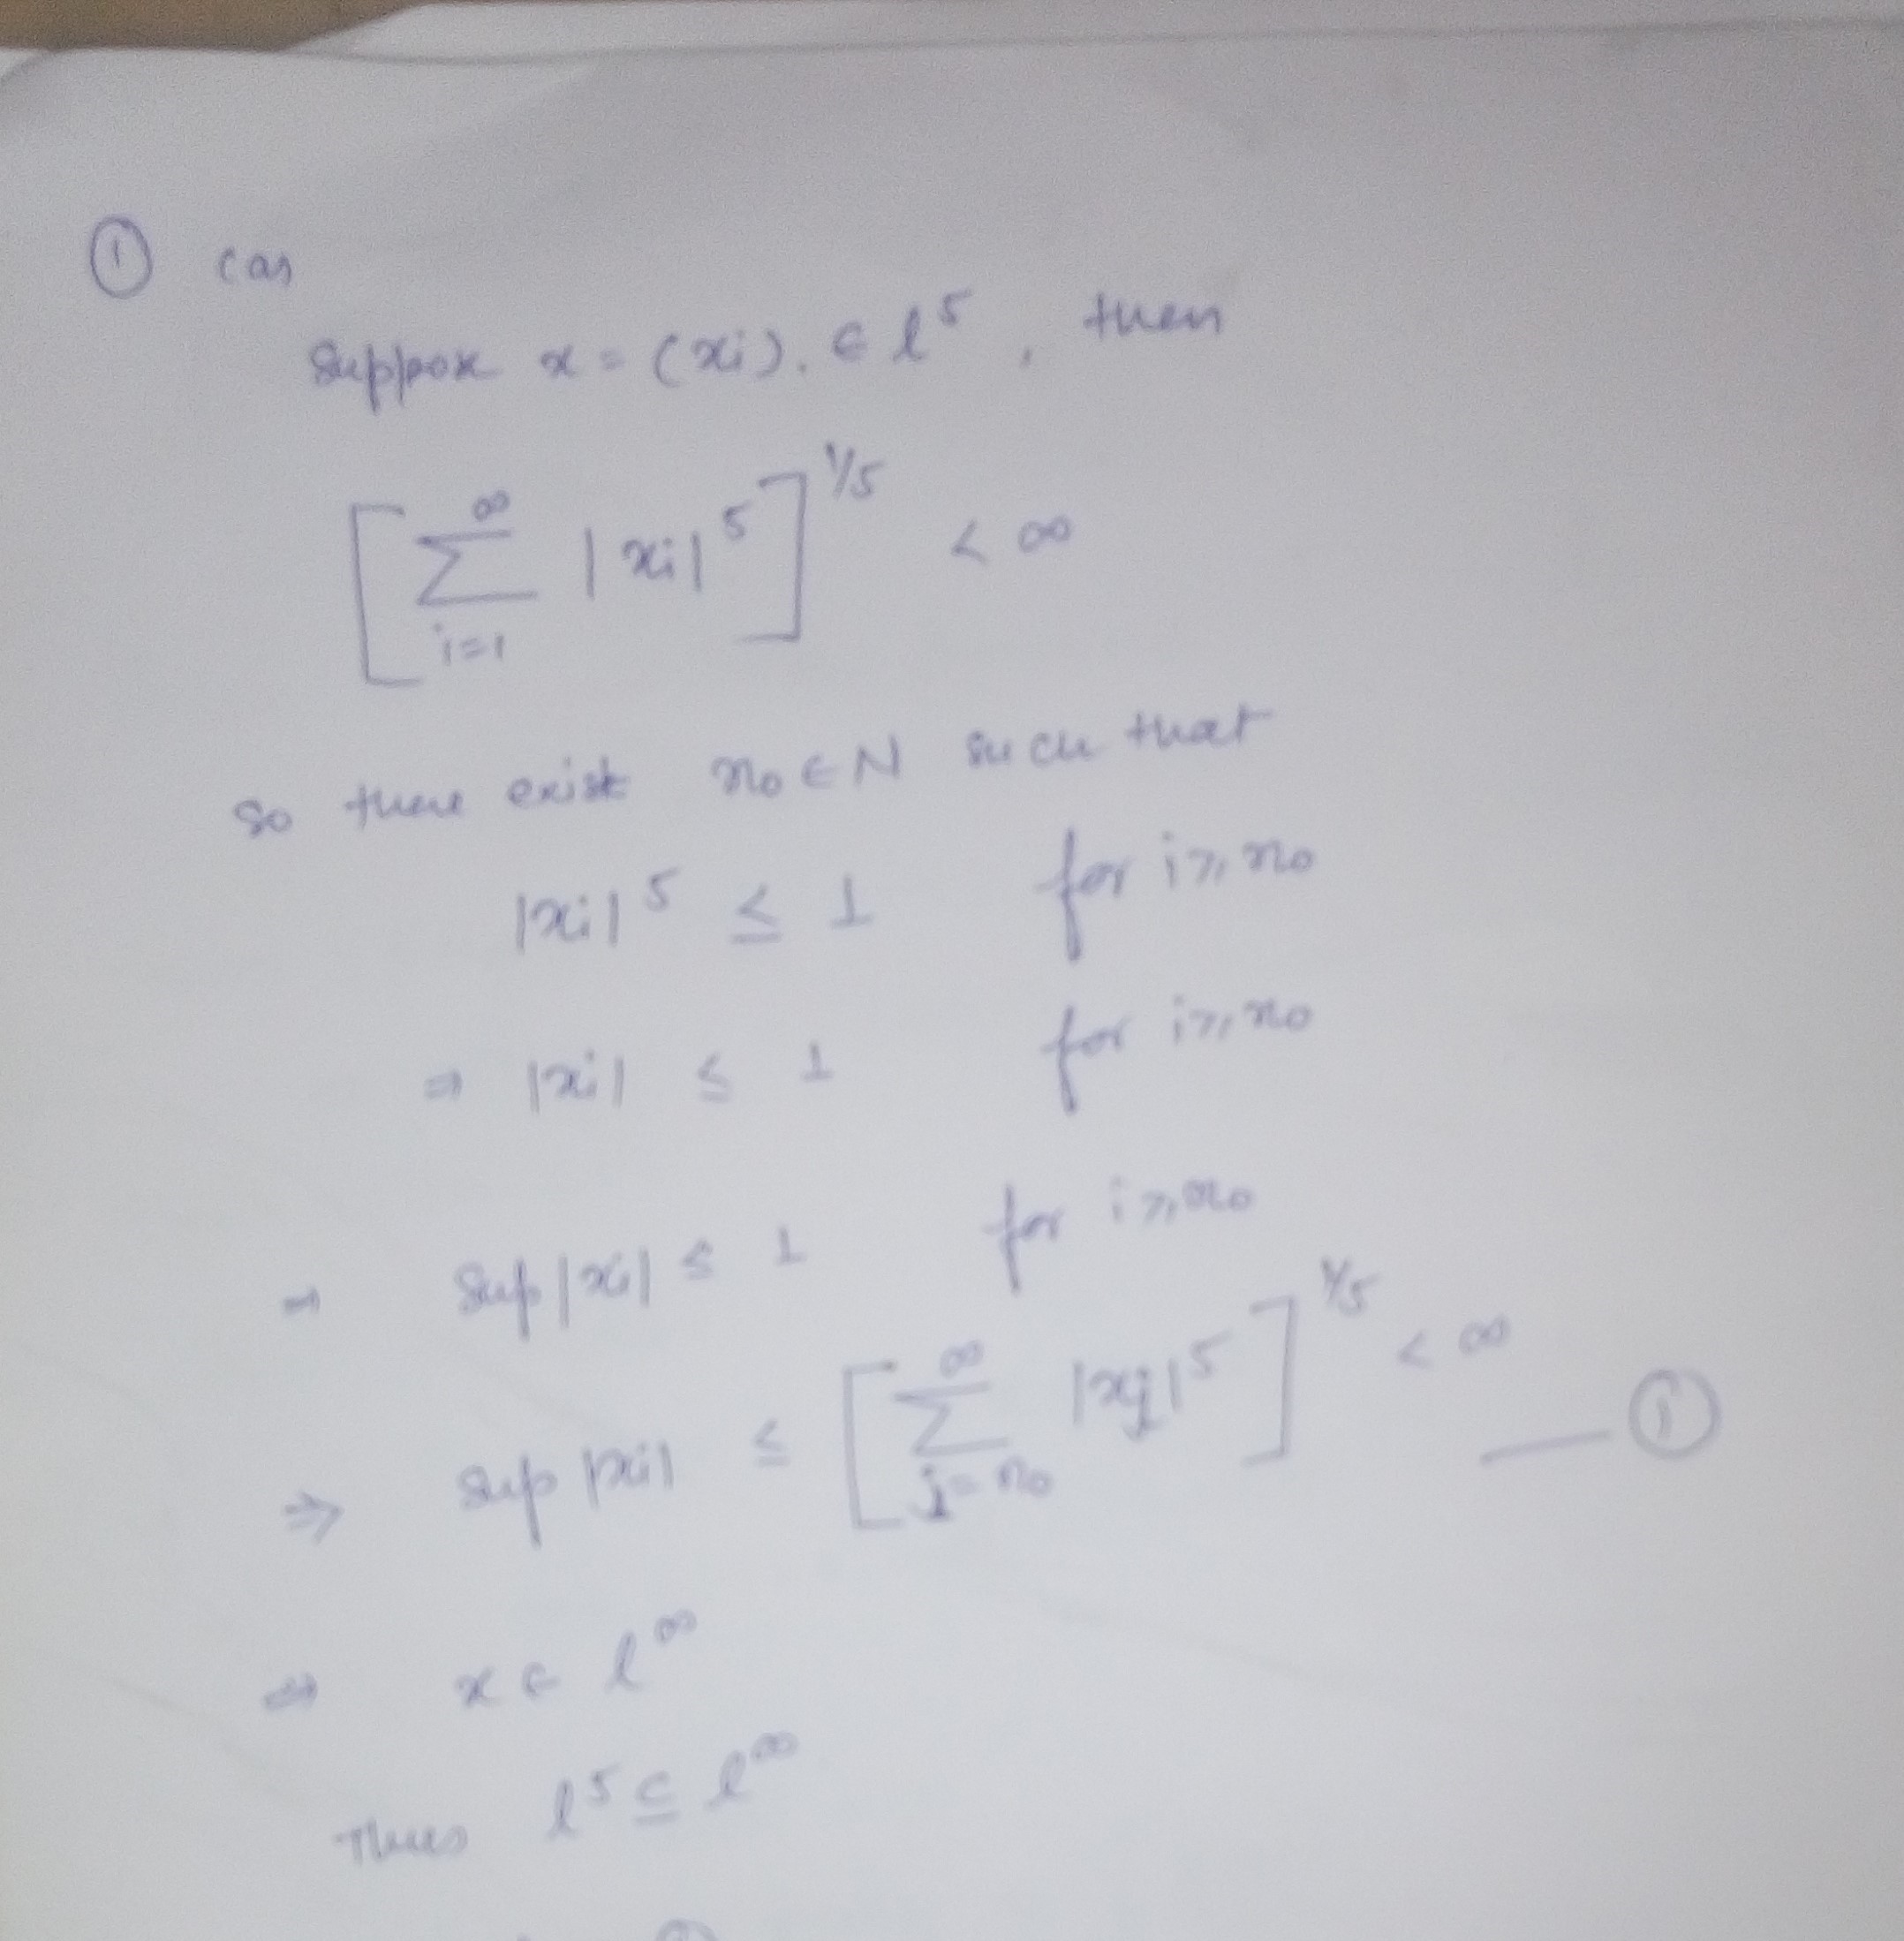 ① (a)
Suppose x = (xi). ∈ l⁵, then
[∑_{i=1}^{∞} |xi|⁵]^{1/5} < ∞
So there exist n₀ ∈ N such that
|xi|⁵ ≤ 1 for i ≥ n₀
⇒ |xi| ≤ 1 for i ≥ n₀
⇒ Sup |xi| ≤ 1 for i ≥ n₀
⇒ Sup |xi| ≤ [∑_{j=n₀}^{∞} |xj|⁵]^{1/5} < ∞ — ①
⇒ x ∈ l^∞
Thus l⁵ ⊆ l^∞